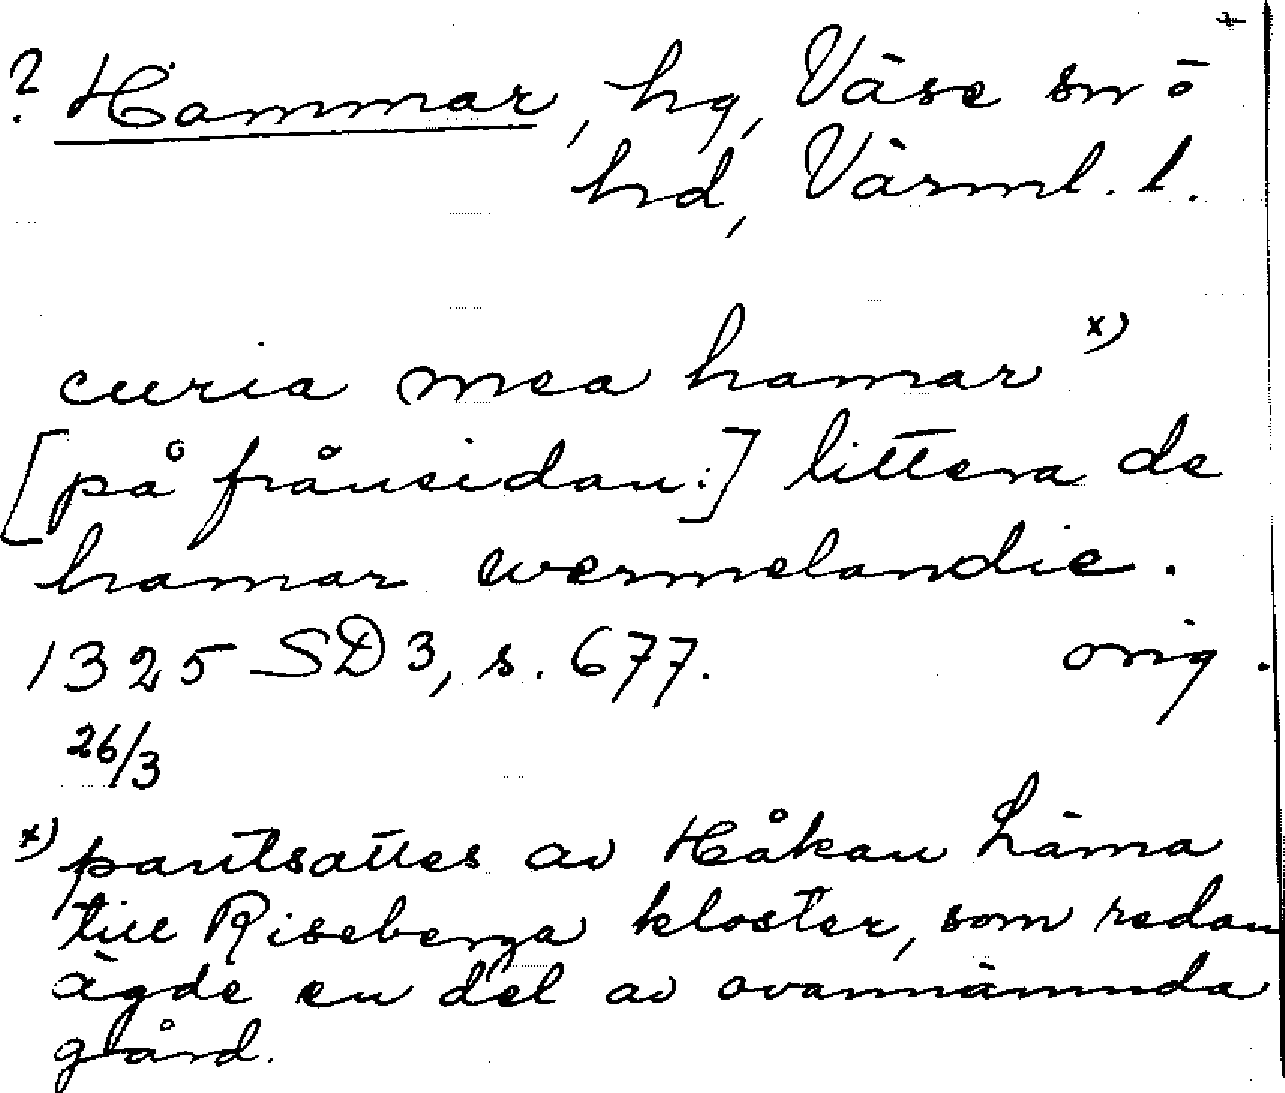 ? Hammar, hg, Väse sn ö
hd, Värml. l.
curia mea hamar x)
[på frånsidan:] littera de
hamar wermelandie.
1325 SD 3, s. 677. orig.
26/3
x) pantsattes av Håkan Läma
till Riseberga kloster, som redan
ägde en del av ovannämnda
gård.